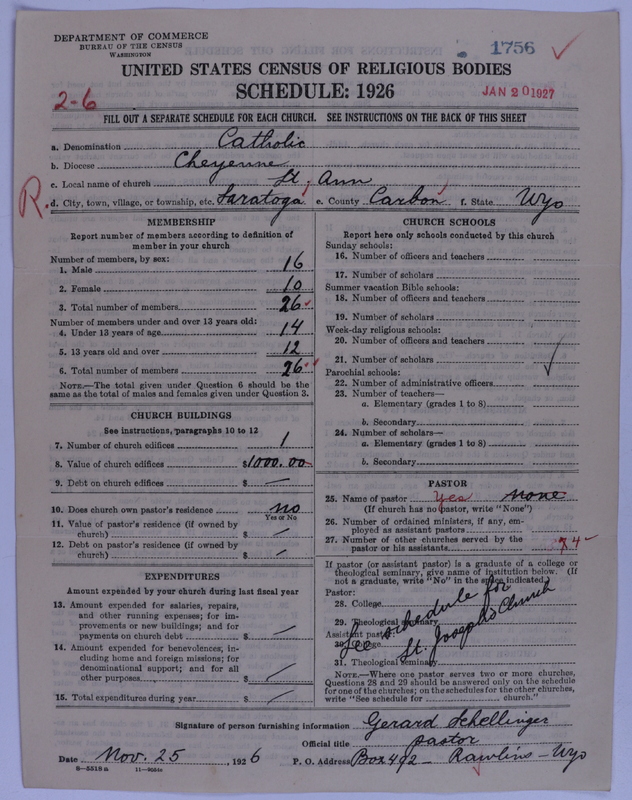 DEPARTMENT OF COMMERCE
BUREAU OF THE CENSUS
WASHINGTON
1756
UNITED STATES CENSUS OF RELIGIOUS BODIES
SCHEDULE: 1926
2-6
JAN 20 1927
FILL OUT A SEPARATE SCHEDULE FOR EACH CHURCH. SEE INSTRUCTIONS ON THE BACK OF THIS SHEET
a. Denomination Catholic
b. Diocese Cheyenne
c. Local name of church St. Ann
R. d. City, town, village, or township, etc. Saratoga e. County Carbon f. State Wyo
MEMBERSHIP
Report number of members according to definition of
member in your church
Number of members, by sex:
1. Male 16
2. Female 10
3. Total number of members 26
Number of members under and over 13 years old:
4. Under 13 years of age 14
5. 13 years old and over 12
6. Total number of members 26
NOTE.—The total given under Question 6 should be
same as the total of males and females given under Question 3.
CHURCH BUILDINGS
See instructions, paragraphs 10 to 12
7. Number of church edifices 1
8. Value of church edifices $1000.00
9. Debt on church edifices $ —
10. Does church own pastor's residence no
Yes or No
11. Value of pastor's residence (if owned by
church) $ —
12. Debt on pastor's residence (if owned by
church) $ —
EXPENDITURES
Amount expended by your church during last fiscal year
13. Amount expended for salaries, repairs,
and other running expenses; for im-
provements or new buildings; and for
payments on church debt $ —
14. Amount expended for benevolences, in-
cluding home and foreign missions; for
denominational support; and for all
other purposes $ —
15. Total expenditures during year $ —
CHURCH SCHOOLS
Report here only schools conducted by this church
Sunday schools:
16. Number of officers and teachers
17. Number of scholars
Summer vacation Bible schools:
18. Number of officers and teachers
19. Number of scholars
Week-day religious schools:
20. Number of officers and teachers
21. Number of scholars
Parochial schools:
22. Number of administrative officers
23. Number of teachers—
a. Elementary (grades 1 to 8)
b. Secondary
24. Number of scholars—
a. Elementary (grades 1 to 8)
b. Secondary
PASTOR
25. Name of pastor Yes none
(If church has no pastor, write "None")
26. Number of ordained ministers, if any, em-
ployed as assistant pastors
27. Number of other churches served by the
pastor or his assistants 4
If pastor (or assistant pastor) is a graduate of a college or
theological seminary, give name of institution below. (If
not a graduate, write "No" in the space indicated.)
Pastor:
28. College
29. Theological seminary
Assistant pastor:
30. College
31. Theological seminary
See schedule for
St. Joseph's Church
NOTE.—Where one pastor serves two or more churches,
Questions 28 and 29 should be answered only on the schedule
for one of the churches; on the schedules for the other churches,
write "See schedule for church."
Signature of person furnishing information Gerard Schellinger
Official title pastor
Date Nov. 25, 1926 P. O. Address Box 402 — Rawlins - Wyo
8—5518a